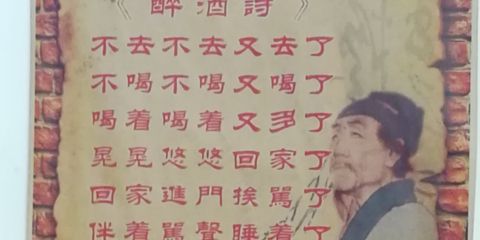 《醉酒詩》
不去不去又去了
不喝不喝又喝了
喝着喝着又多了
晃晃悠悠回家了
回家進門挨駡了
伴着駡聲睡着了